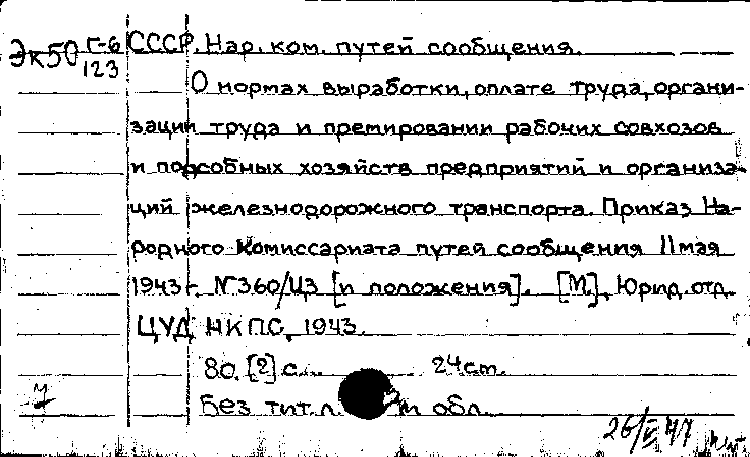 Эк50 Г-6 СССР. Нар. ком. путей сообщения.
123
О нормах выработки, оплате труда, органи-
зации труда и премировании рабочих совхозов
и подсобных хозяйств предприятий и организа-
ций железнодорожного транспорта. Приказ На-
родного Комиссариата путей сообщения 11 мая
1943 г. № 360/ЦЗ [и положения]. [М.], Юрид. отд.
ЦУД НКПС, 1943.
80. [2] с. 24 см.
Без тит. л. и обл.